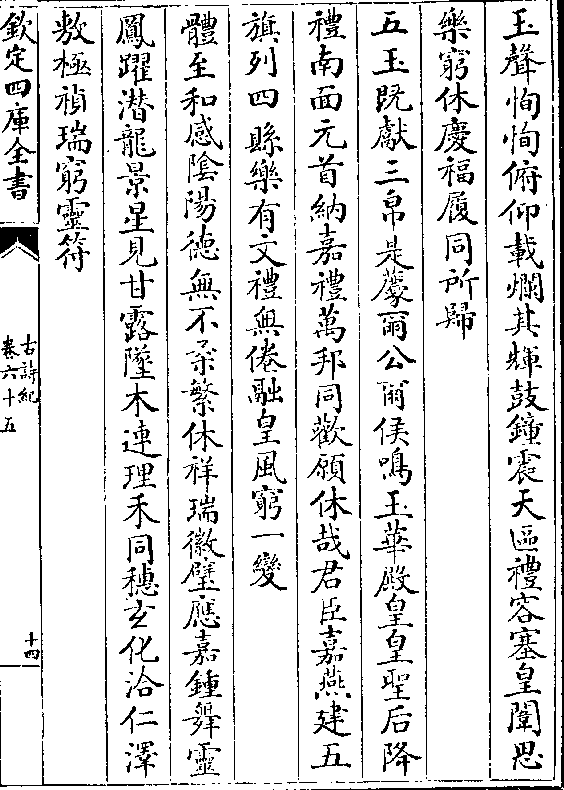 玉聲恂恂俯仰載爛其輝鼓鐘震天區禮容塞皇闈思
樂窮休慶福履同所歸
五玉既獻三帛是薦爾公爾侯鳴玉華殿皇皇聖后降
禮南面元首納嘉禮萬邦同歡願休哉君臣嘉燕建五
旗列四縣樂有文禮無倦融皇風窮一變
體至和感陰陽德無不柔繁休祥瑞徽璧應嘉鍾舞靈
鳳躍潛龍景星見甘露墜木連理禾同穗玄化洽仁澤
敷極禎瑞窮靈符
欽定四庫全書
古詩紀
卷六十五
十四